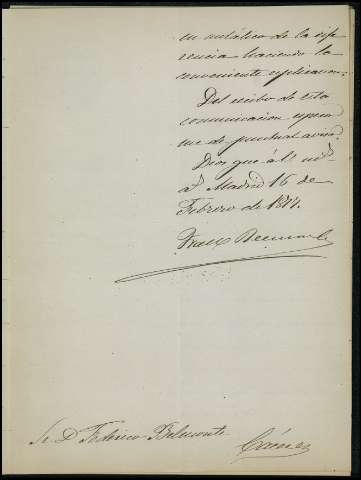 en metálico de la dife
rencia haciendo la
conveniente esplicacion.
Del recibo de esta
comunicacion
me dé puntual aviso.
Dios gue á V. ms. as.
Madrid 16 de
Febrero de 1874.
Sr. D. Federico Belmonte
Cáceres